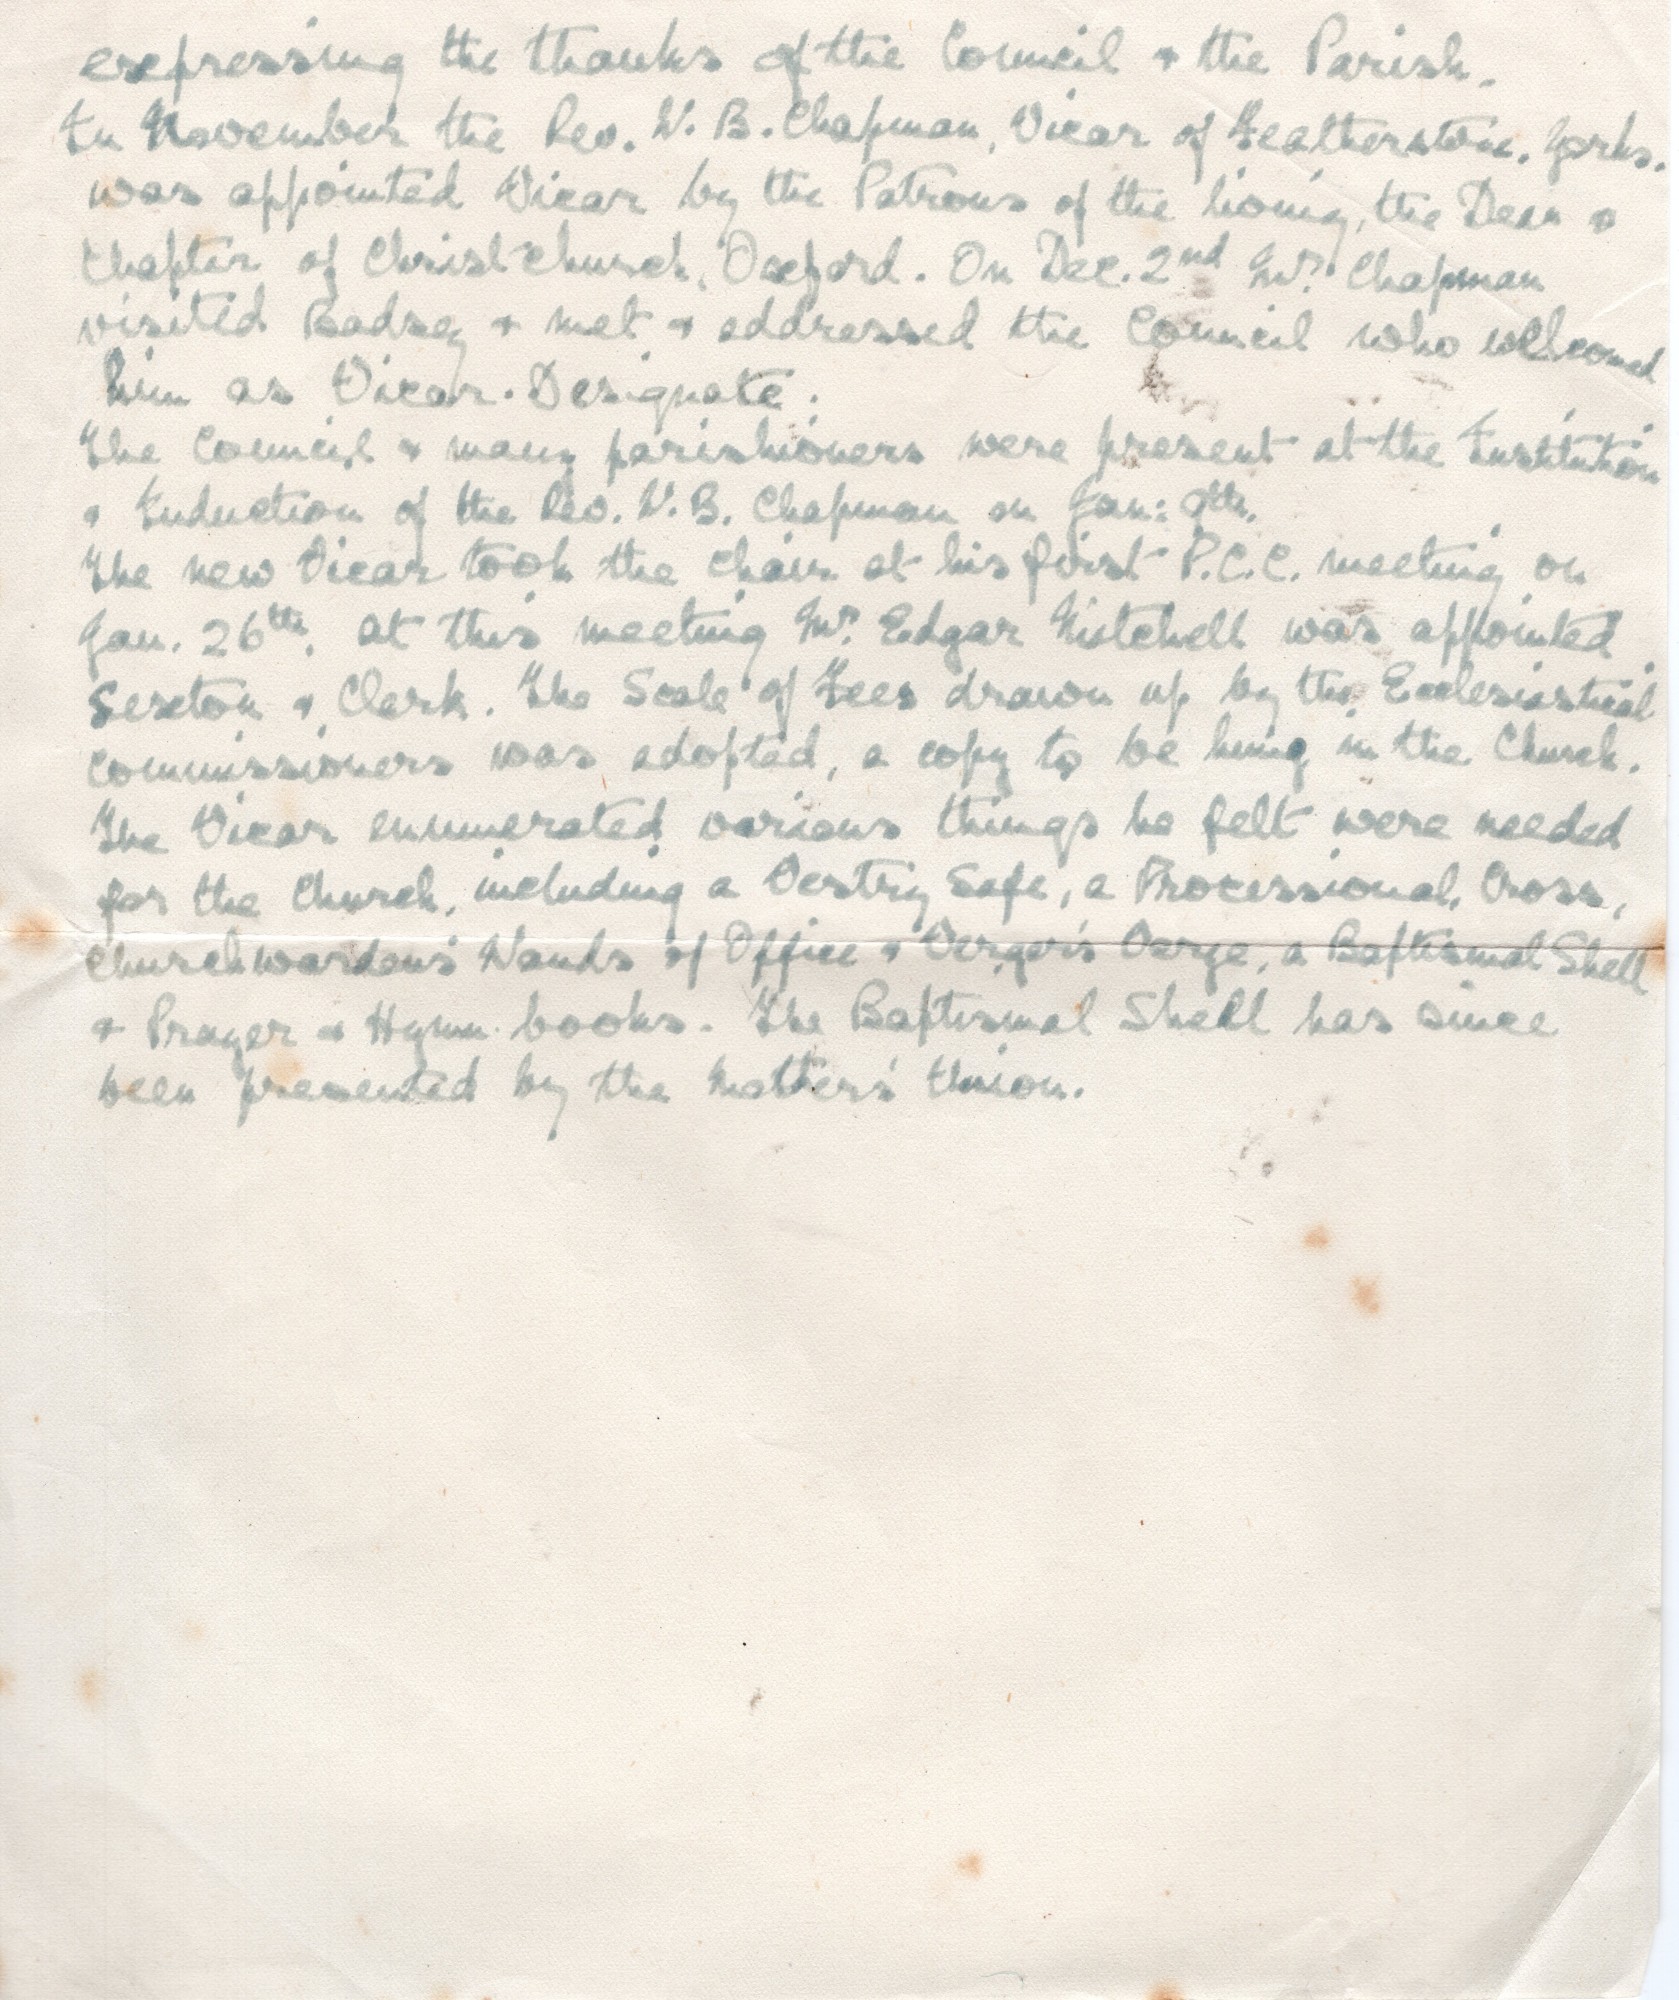 expressing the thanks of the Council & the Parish.
In November the Rev. W. B. Chapman, Vicar of Featherstone, Yorks.
was appointed Vicar by the Patrons of the living, the Dean &
Chapter of Christchurch, Oxford. On Dec. 2nd Mr. Chapman
visited Badsey & met & addressed the Council who welcomed
him as Vicar-Designate.
The Council & many parishioners were present at the Institution
& Induction of the Rev. W. B. Chapman on Jan: 9th.
The new Vicar took the Chair at his first P.C.C. meeting on
Jan. 26th. At this meeting Mr. Edgar Mitchell was appointed
Sexton & Clerk. The Scale of Fees drawn up by the Ecclesiastical
Commissioners was adopted, a copy to be hung in the Church.
The Vicar enumerated various things he felt were needed
for the Church, including a Vestry Safe, a Processional Cross,
Churchwardens' Wands of Office & Verger's Verge, a Baptismal Shell
& Prayer & Hymn books. The Baptismal Shell has since
been presented by the Mothers' Union.